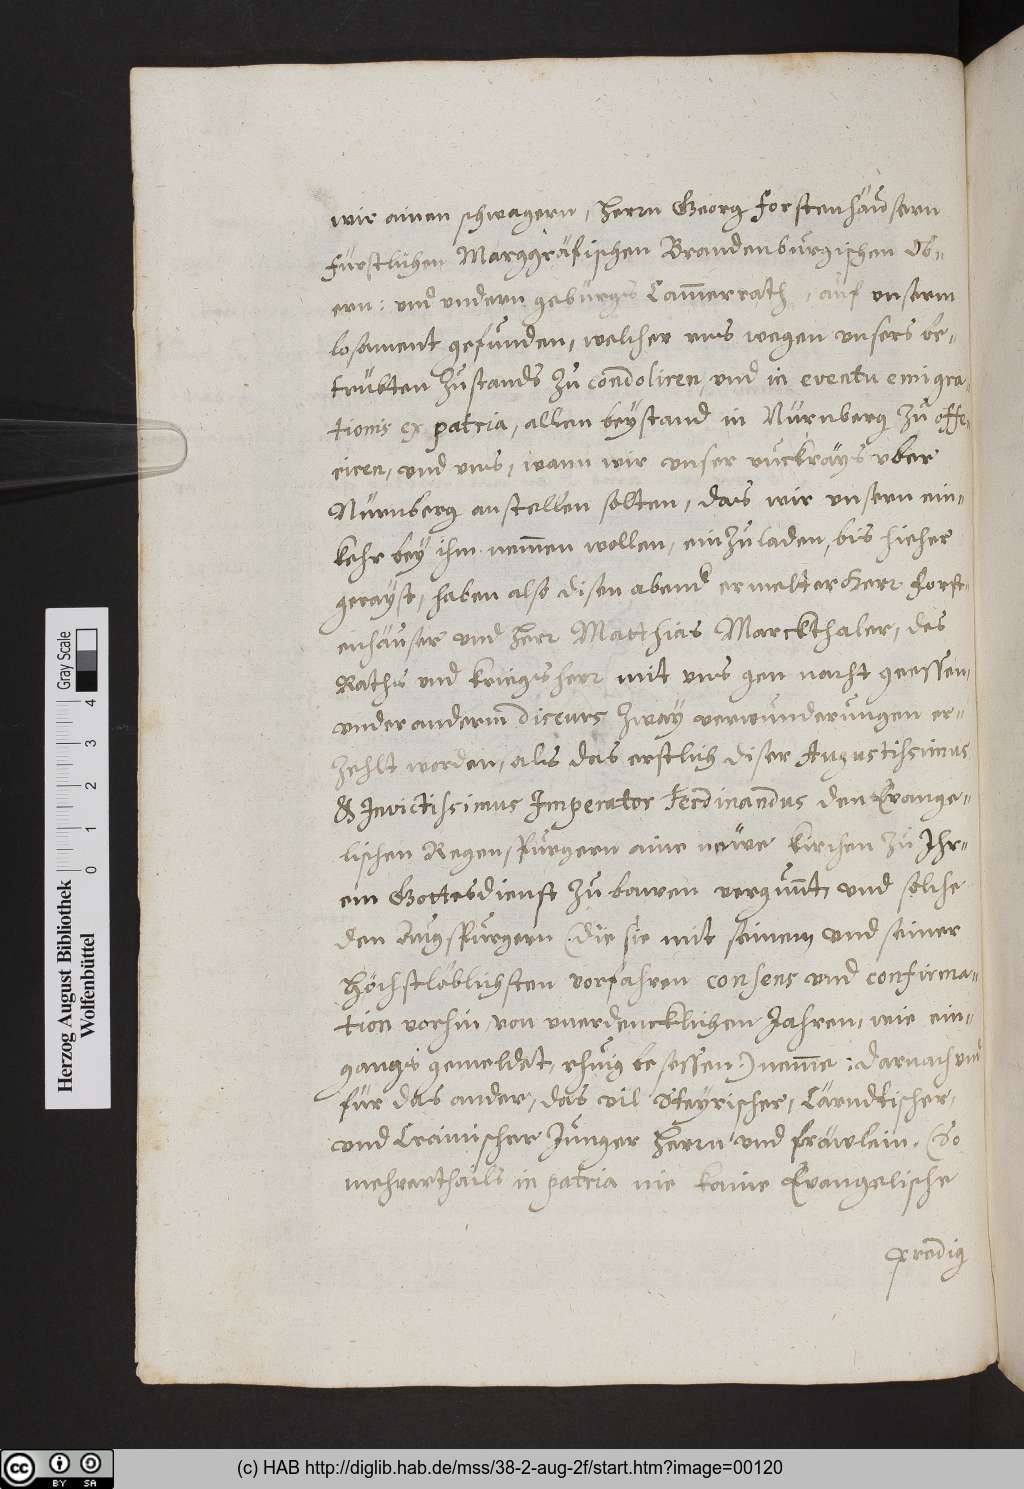 wir ainen schwagern, Herrn Georg Forstenhäusern
Fürstlichen Marggräfischen Brandenburgischen Ob-
ern: und undern geburgs Cam̅errath, auf unserm
losament gefunden, welcher uns wegen unsers be-
trübten Zustands zu condoliren, und in eventu emigra-
tionis ex patria, allen beystand in Nürnberg zu offe-
riren, und uns, wann wir unser ruckrays uber
Nürnberg anstellen solten, das wir unsern ein-
kehr bey ihm nem̅en wollen, einzuladen, bis hieher
gerayst, haben also disen abend ermelter Herr Forst-
enhäuser und Herr Matthias Marckthaler, des
Raths und kriegsherr mit uns gen nacht geessen,
under anderm discurs zway verwunderungen er-
zehlt worden, als das erstlich diser Augustissimus
& Invictissimus Imperator Ferdinandus den Evange-
lischen Regenspurgern aine newe kirchen zu Ihr-
em Gottesdienst zu bawen vergun̅t, und solche
den Augspurgern (die sie mit seinem und seiner
Höchstlöblichsten vorfahren consens und confirma-
tion vorhin, von unerdencklichen Jahren, wie ein-
gangs gemeldet, rhuig besessen:) nem̅e: Darnach und
für das ander, das vil Steyrischer, Cärndtischer,
und Crainischer Junger Herrn und fräwlein, (So
mehrerthails in patria nie kaine Evangelische
predig
Herzog August Bibliothek
Wolfenbüttel
0 1 2 3 4
Gray Scale
BY SA
(c) HAB http://diglib.hab.de/mss/38-2-aug-2f/start.htm?image=00120